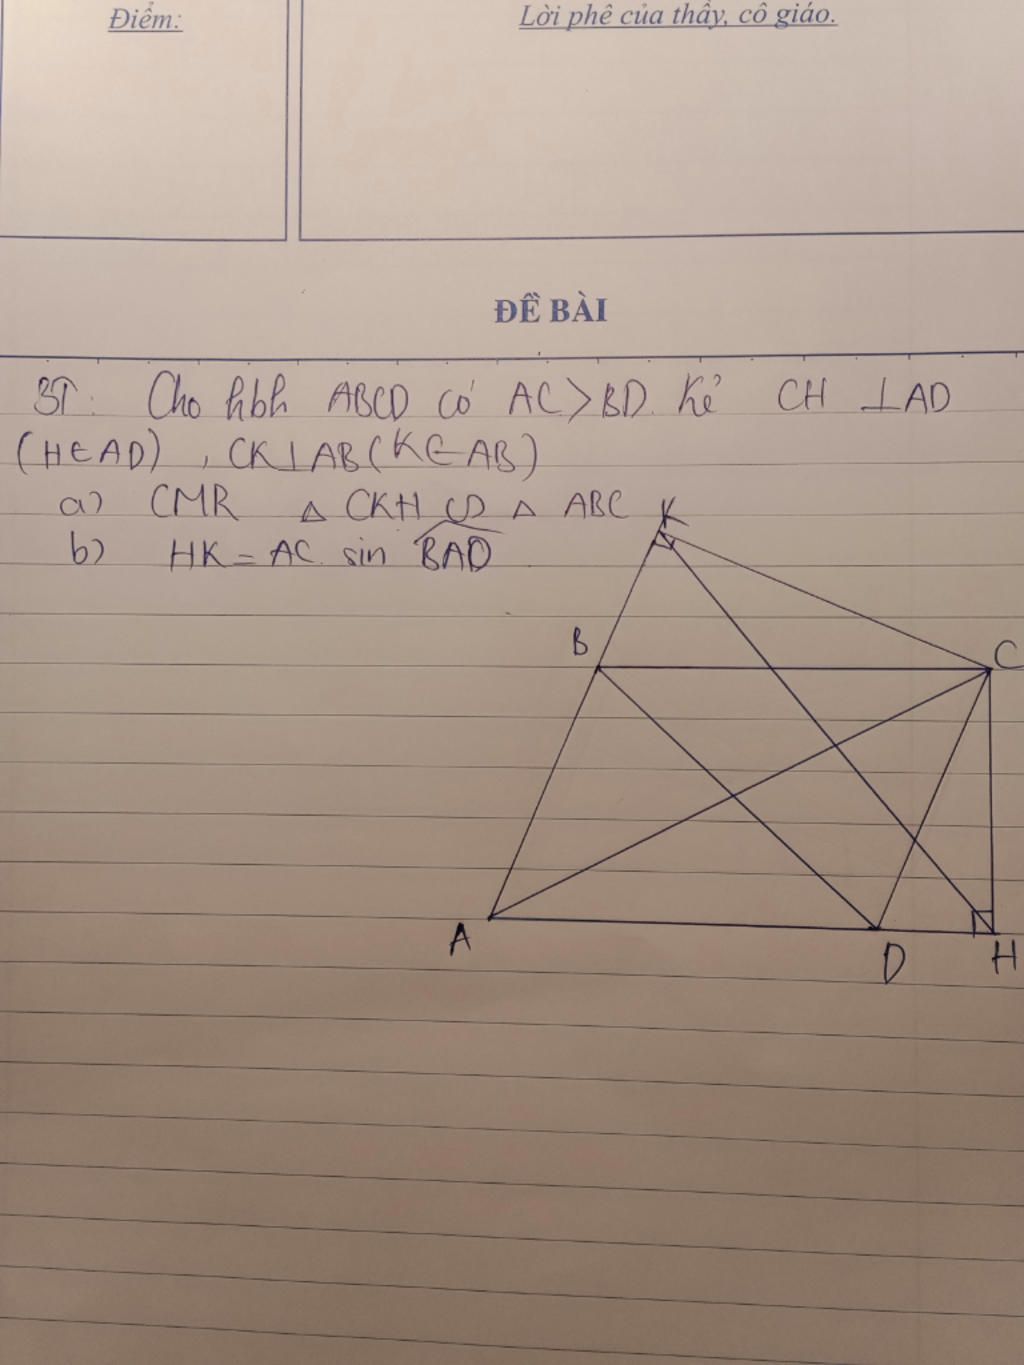 Điểm:
Lời phê của thầy, cô giáo.
ĐỀ BÀI
BT: Cho hbh ABCD có AC > BD. Kẻ CH ⊥ AD
(H ∈ AD), CK ⊥ AB (K ∈ AB)
a) CMR △ CKH ∽ △ ABC
b) HK = AC. sin \widehat{BAD}
K
B
C
A
D
H